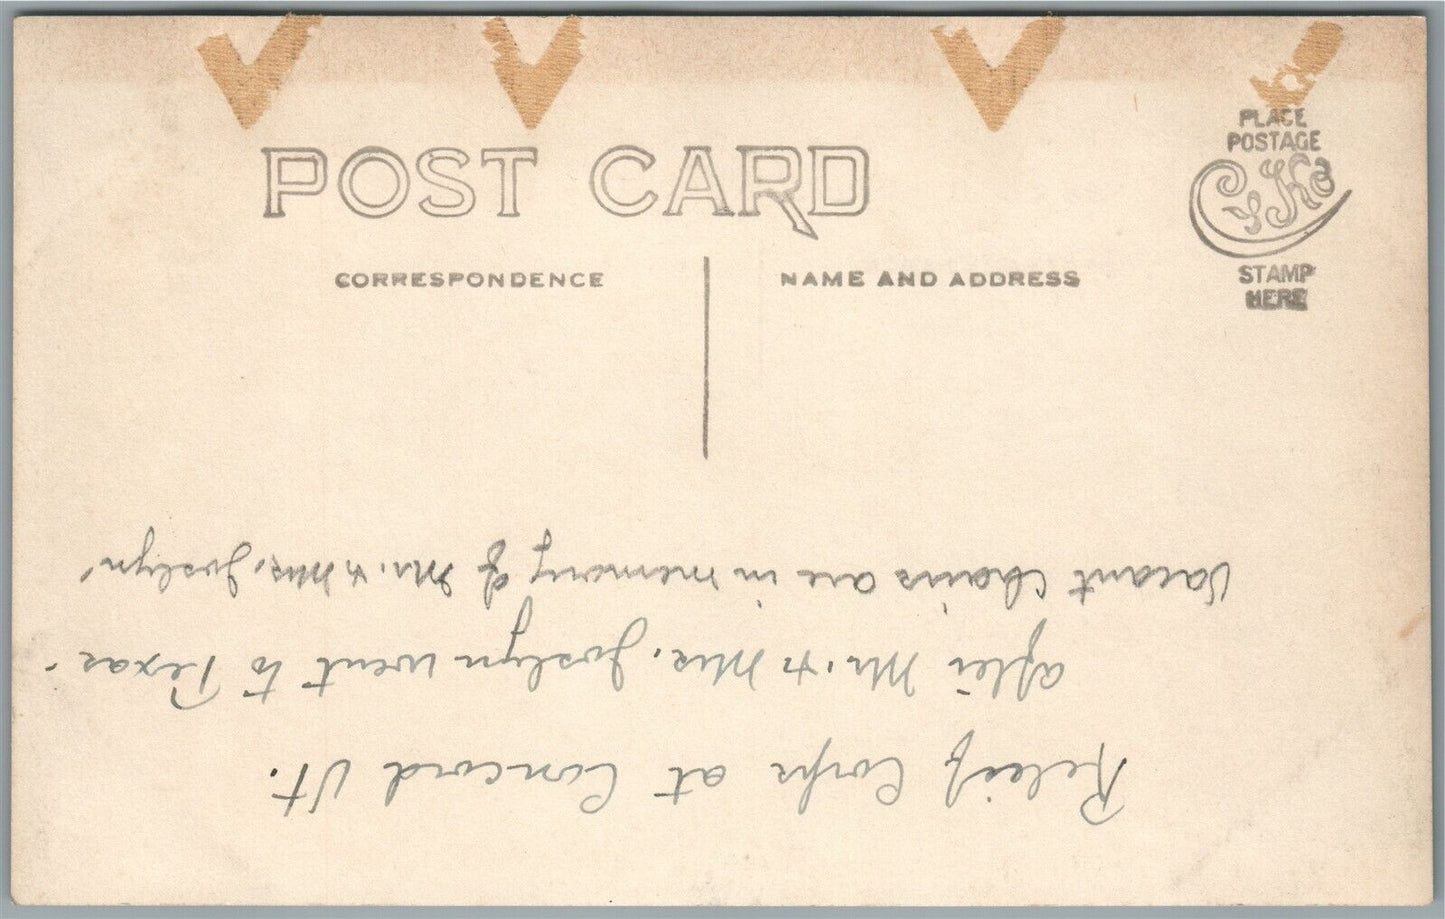 POST CARD
CORRESPONDENCE
NAME AND ADDRESS
PLACE
POSTAGE
CYKO
STAMP
HERE
Relief Corps at Concord Vt.
after Mr. & Mrs. Joslyn went to Texas.
Vacant chairs are in memory of Mr. & Mrs. Joslyn.